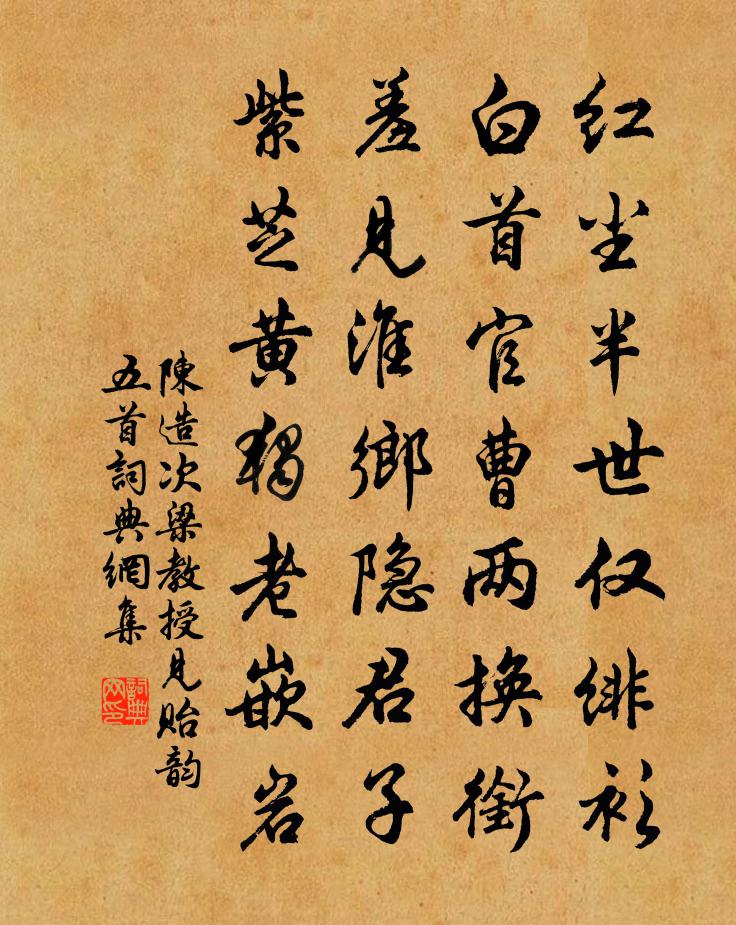 红尘半世仅绯衫
白首官曹两换銜
羞见淮鄉隐君子
紫芝黄独老嵌岩
陳造次梁教授见贻韵
五首詞典網集
詞典
网印